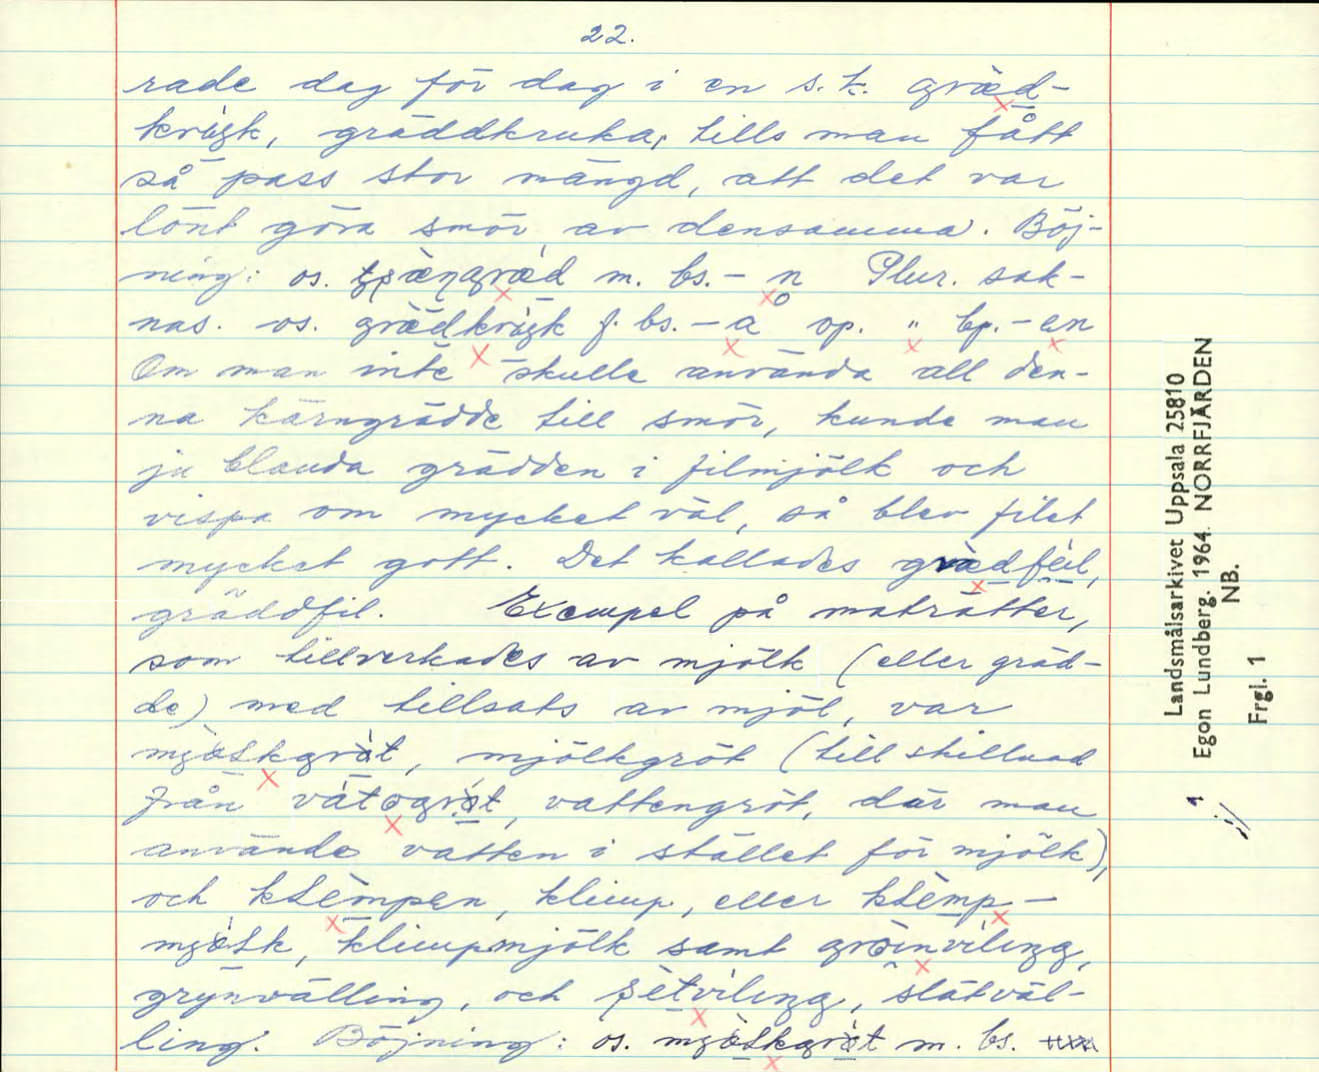 22.
rade dag för dag i en s.k. gräd-
kruk, gräddkruka, tills man fått
så pass stor mängd, att det var
lönt göra smör av densamma. Böj-
ning: os. m. bs. - n Plur. sak-
nas. os. f. bs. - a op. " bp. - en
Om man inte skulle använda all den-
na kärngrädde till smör, kunde man
ju blanda grädden i filmjölk och
vispa om mycket väl, så blev filet
mycket gott. Det kallades grædfeil,
gräddfil. Exempel på maträtter,
som tillverkades av mjölk (eller gräd-
de) med tillsats av mjöl, var
mjölkgröt (till skillnad
från vattengröt, där man
använde vatten i stället för mjölk),
och klèmpen, klimp, eller klèmp-
klimpmjölk samt
grynvälling, och slätväl-
ling. Böjning: os. m. bs.
Landsmålsarkivet Uppsala 25810
Egon Lundberg. 1964. NORRFJÄRDEN
NB.
Frgl. 1